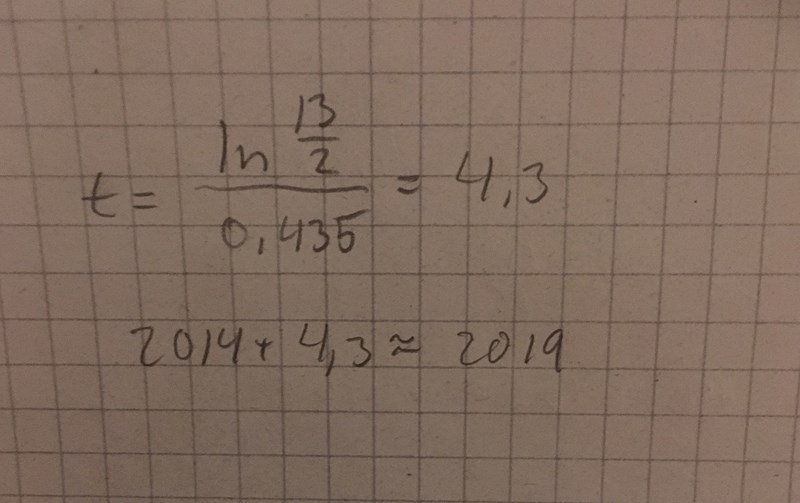 t = ln 13/2 / 0,435 = 4,3
2014 + 4,3 ≈ 2019